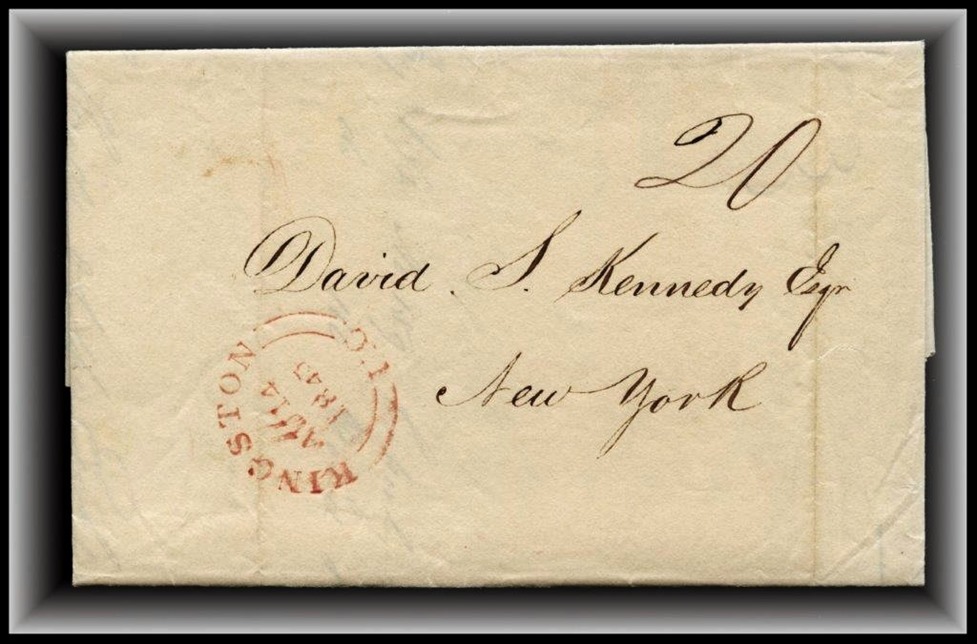 20
David S. Kennedy Esqr
New York
KINGSTON
U.C.
AU 14
1843